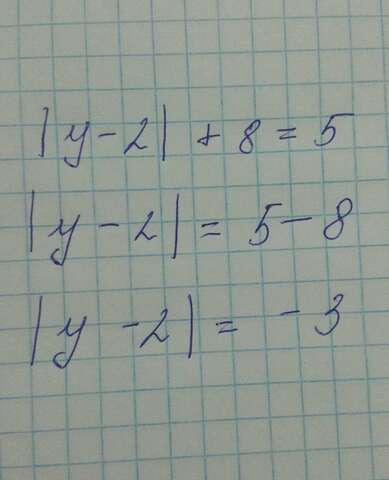 |y-2|+8=5
|y-2|=5-8
|y-2|=-3